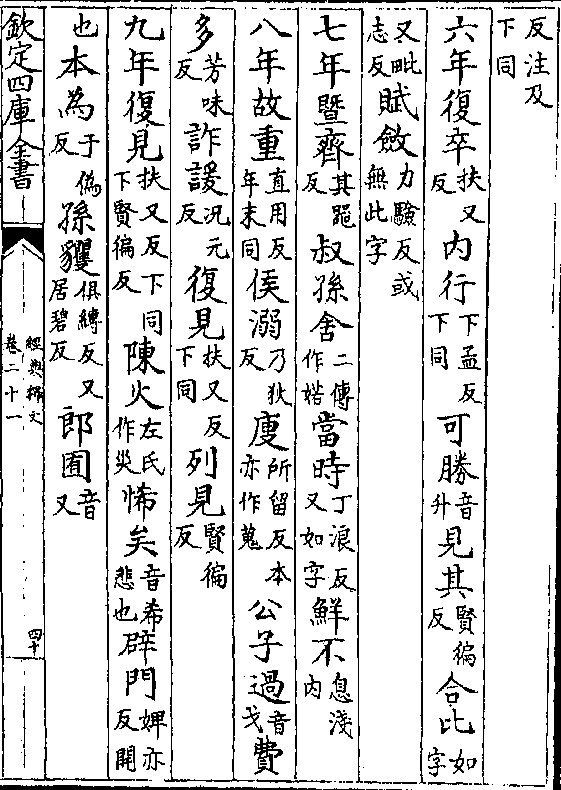 反注及下同
六年復卒扶又反內行下孟反下同可勝音升見其賢徧反合比如字
又毗志反賦斂力驗反或無此字
七年暨齊其反叔孫舍二傳作婼當時丁浪反又如字鮮不息淺内
八年故重直用反年末同侯溺乃狄反廋所留反本亦作蒐公子過音戈費
多芳味反詐諼况元反復見扶又反下同列見賢徧反
九年復見扶又反下同下賢徧反陳火左氏作災悕矣音希悲也辟門婢亦反開
也本為于偽反孫貜俱縛反又居碧反郎囿音又
欽定四庫全書
經典釋文
卷二十一
四十